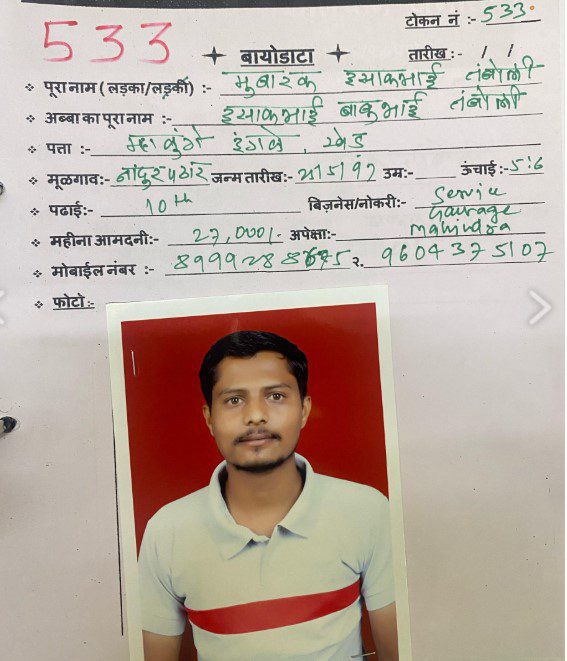 533
टोकन नं :- 533
बायोडाटा
तारीख :- / /
पूरा नाम (लड़का/लड़की) :- मुबारक इसाकभाई तंबोळी
अब्बा का पूरा नाम :- इसाकभाई बाबुभाई तंबोळी
पत्ता :- म्हाळुंगे इंगळे, खेड
मूळगाव:- नांदुर पठार जन्म तारीख:- उम:- ऊंचाई :- 5:6
पढाई:- 10th बिज़नेस/नोकरी:- Service
Gaurage
महीना आमदनी:- 27,000/- अपेक्षा:- Mahindra
मोबाईल नंबर :- २. 9604375107
फोटो :-